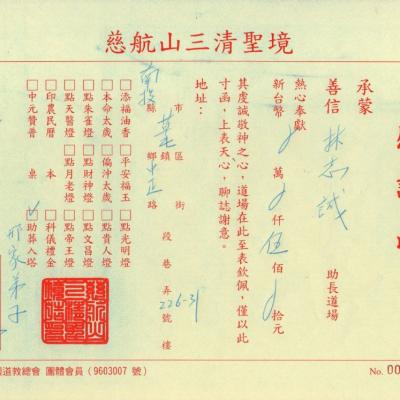 慈航山三清聖境
感謝狀
承蒙
善信 林志誠 助長道場
熱心奉獻
新台幣 0 萬 0 仟 伍 佰 0 拾元
其虔誠敬神之心，道場在此至表欽佩，僅以此
寸函，上表天心，聊誌謝意。
地址：
南投 縣市 鄉鎮區 中正 路街 段 巷 弄 226-31 號 樓
□添福油香 □平安福玉 □點光明燈
□本命太歲 □偏沖太歲 □點貴人燈
□點朱雀燈 □點財神燈 □點文昌燈
□點天醫燈 □點月老燈 □點帝王燈
□印農民曆 □科儀禮金
□中元贊普 桌 ˇ□助葬入塔
邢家弟子
道教總會 團體會員（9603007 號）
No. 00